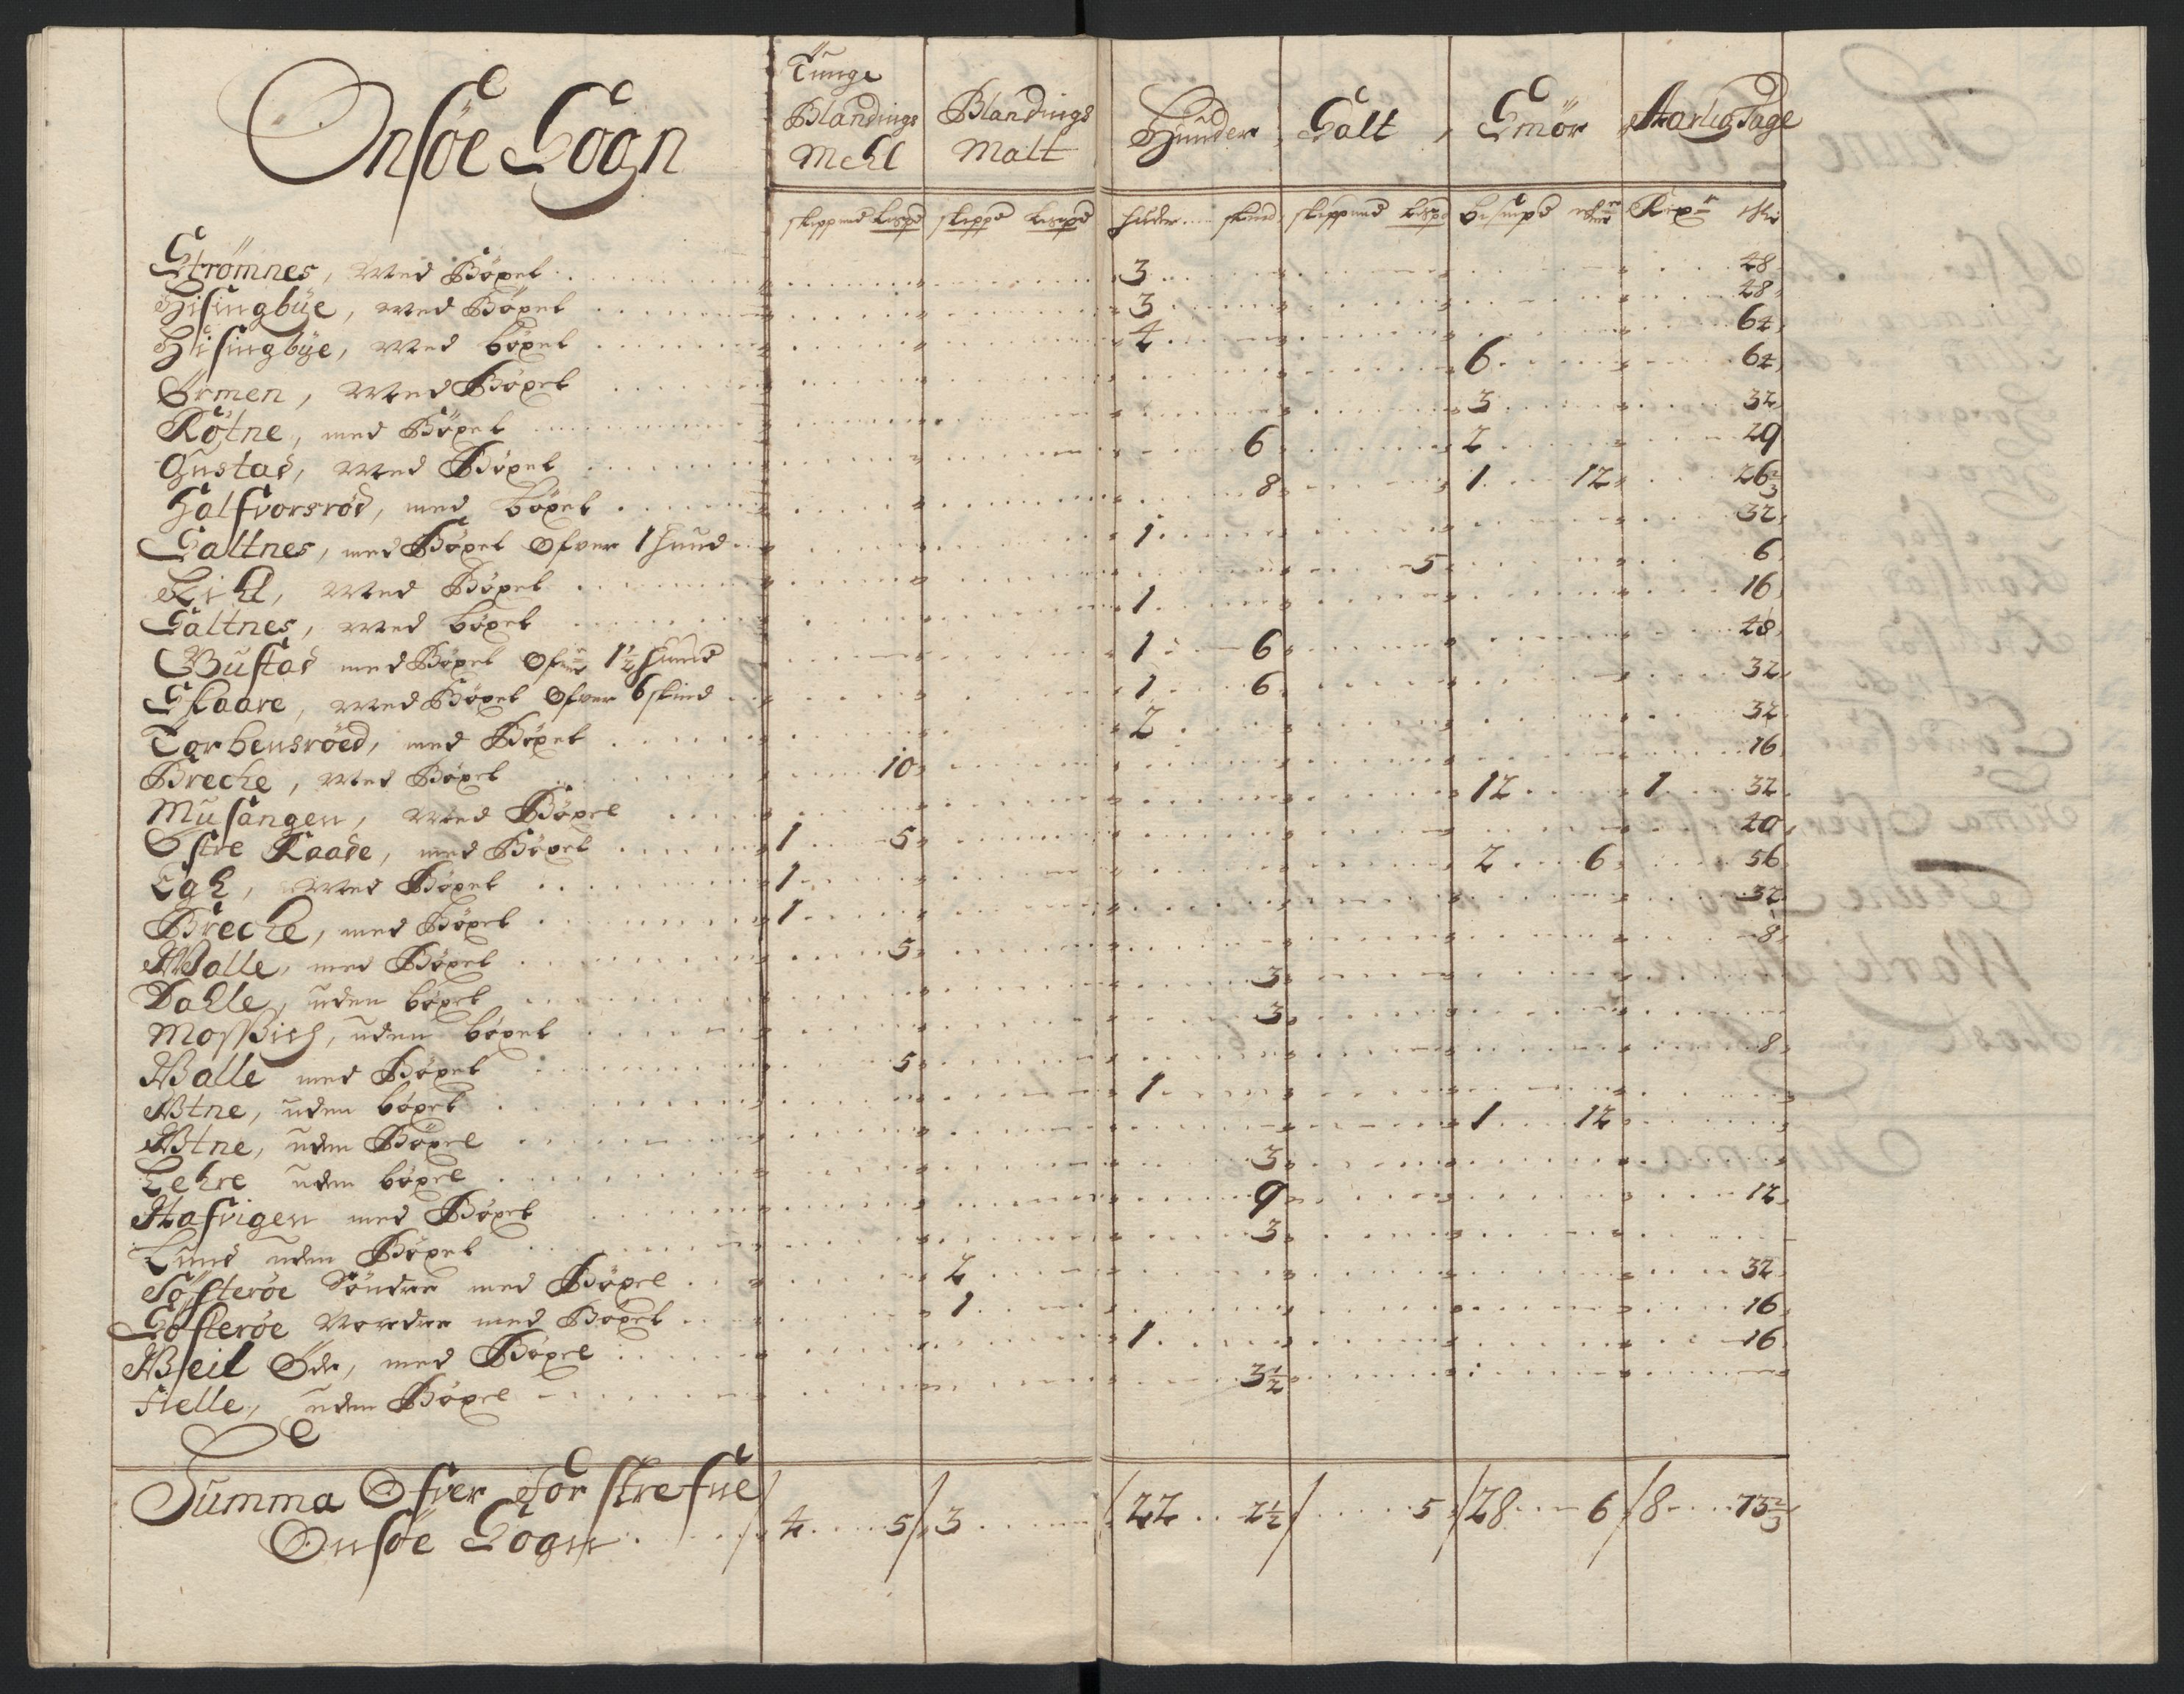 Onsöe Sogn
Tunge Blandings Mehl | Blandings Malt | Huuder | Salt | Smör | Aarlig Tage
skippund Lispd | skippd Lispd | huder skind | skippund Lispd | bismpd mrkr | Rixdr ſk
Strömnes, Med Böxel 3 48
Hisingbÿe, Med Böxel 3 48
Hisingbÿe, Med böxel 4 64
Örmen, Med Böxel 6 64
Rötne, med Böxel 3 32
Gustad, Med Böxel 6 2 29
Halfvorsröd, med böxel 8 1 12 26 2/3
Saltnes, med Böxel Ofver 1 huud 1 32
Lihl, Med Böxel 5 6
Saltnes, Med böxel 1 16
Bustad med Böxel Ofver 1 1/2 huud 1 6 48
Skaare, Med Böxel Ofver 6 skind 1 6 32
Torbensröed, med Böxel 2 32
Breche, Med Böxel 10 16
Musangen, Med Böxel 12 1 32
Östre Raade, med Böxel 1 5 40
Egh, Med Böxel 1 2 6 56
Breche, med Böxel 1 32
Walle, med Böxel 5 8
Dahle, uden böxel 3
Mossvich, uden böxel 3
Walle med Böxel 5 8
Wtne, uden böxel 1
Wtne, uden Böxel 1 12
Lehre uden böxel 3
Hafvigen med Böxel 9 12
Lund uden Böxel 3
Söfsteröe Söndre med Böxel 2 32
Söfsteröe Nordre med Böxel 1 16
Weil Öde, med Böxel 1 16
Helle, uden Böxel 3 1/2
Summa Ofver for skrefne
Onsöe Sogn 4 5 3 22 2 1/2 5 28 6 8 73 2/3